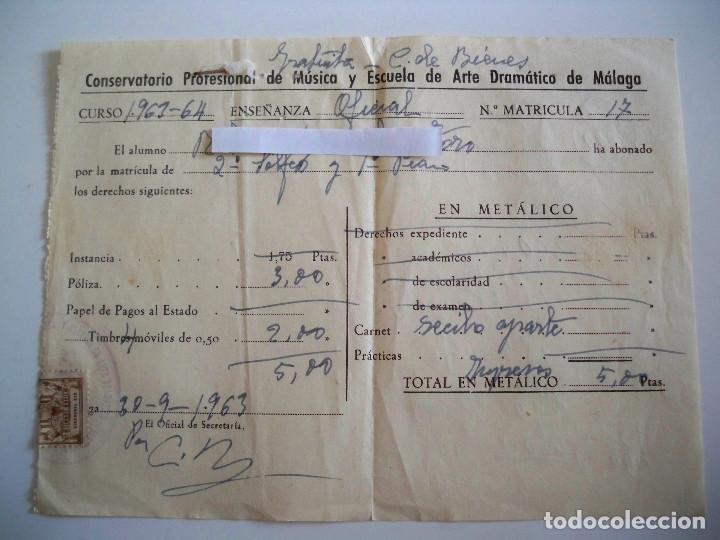 Gratuita C. de Bienes
Conservatorio Profesional de Música y Escuela de Arte Dramático de Málaga
CURSO 1.963-64 ENSEÑANZA Oficial N.º MATRICULA 17
El alumno ha abonado
por la matrícula de 2º Solfeo y 1º Piano
los derechos siguientes:
Instancia 1,75 Ptas.
Póliza. 3,00 »
Papel de Pagos al Estado »
Timbres móviles de 0,50 4 2,00 »
5,00
ga 30-9-1.963
El Oficial de Secretaría,
EN METÁLICO
Derechos expediente Ptas.
» académicos »
» de escolaridad »
» de examen »
Carnet recibo aparte »
Prácticas »
Impresos
TOTAL EN METÁLICO 5,00 Ptas.
todocoleccion.net